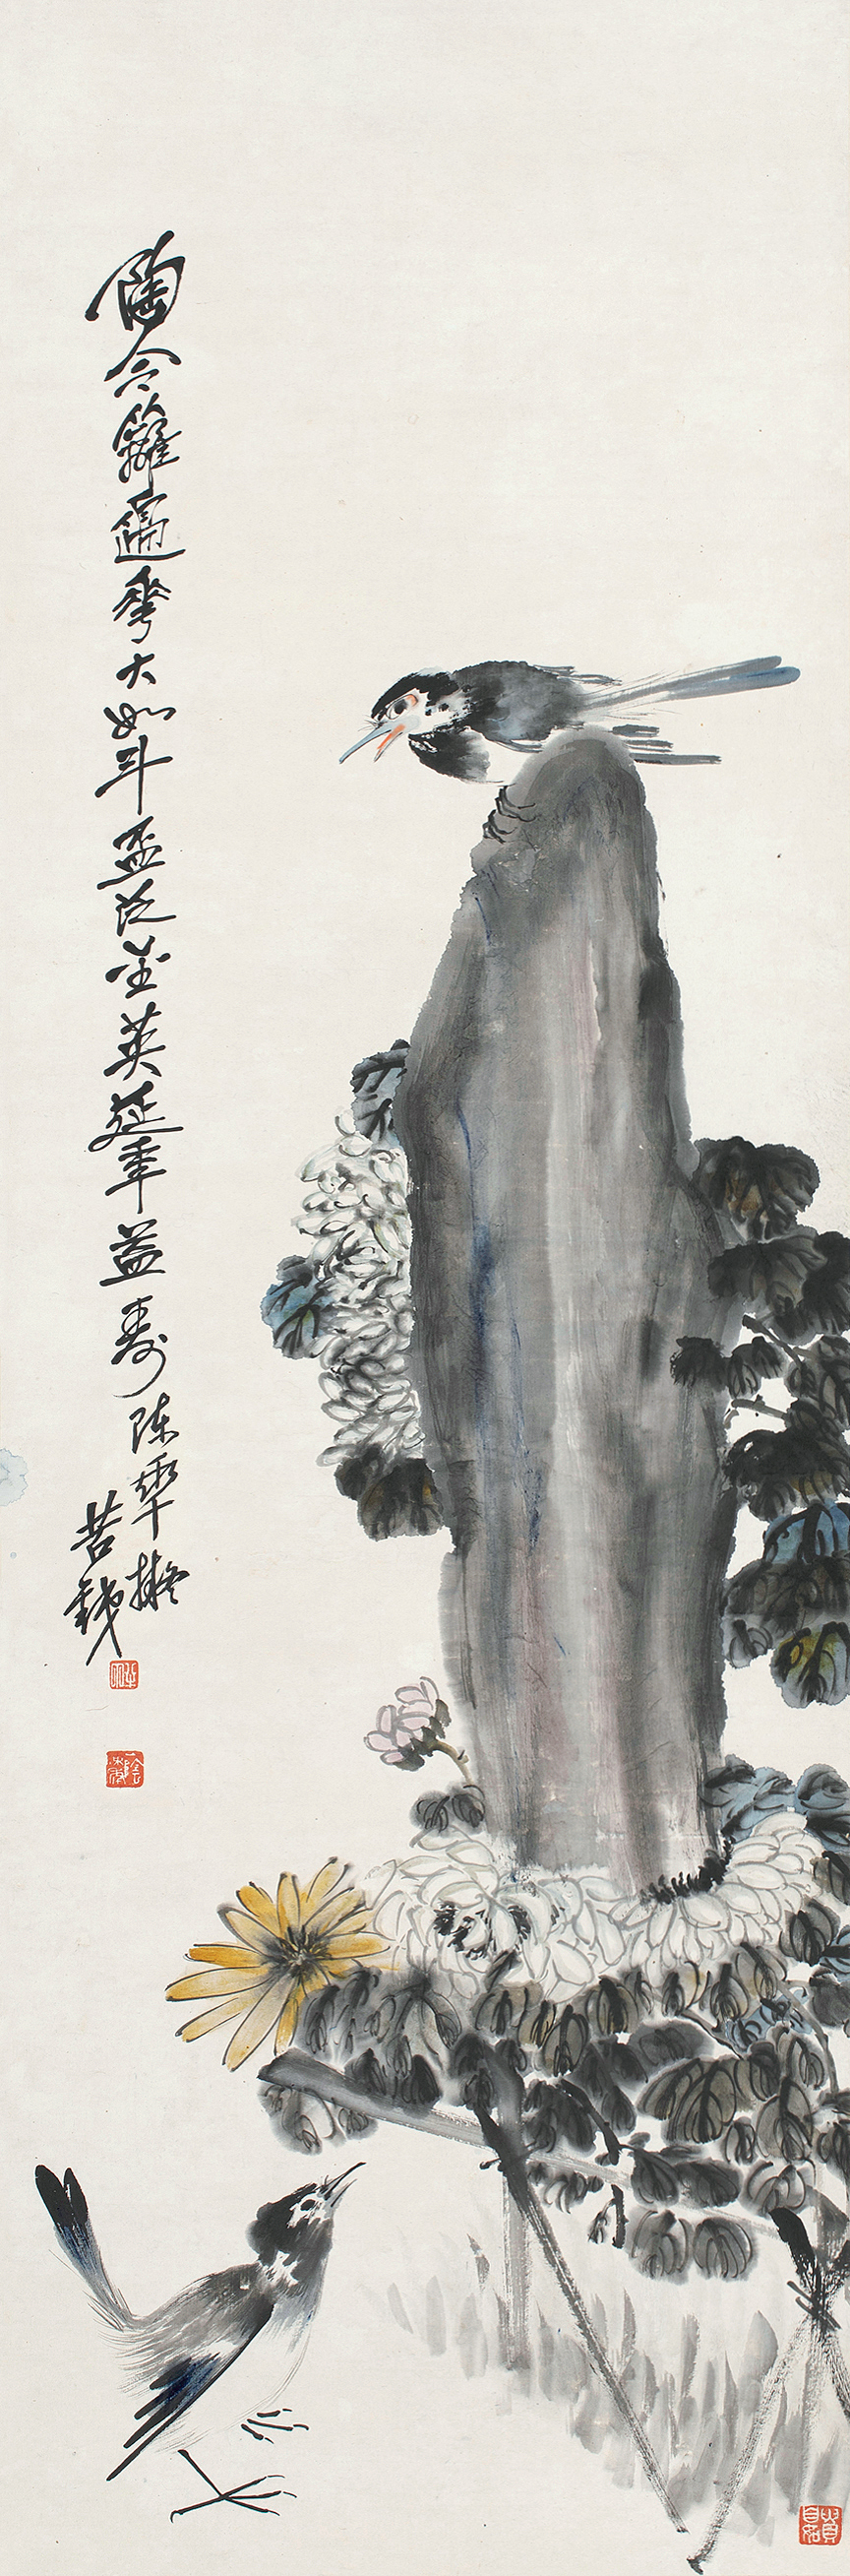 陶令籬邊華大如斗盃泛金英延年益壽
陳擬
苦鐵